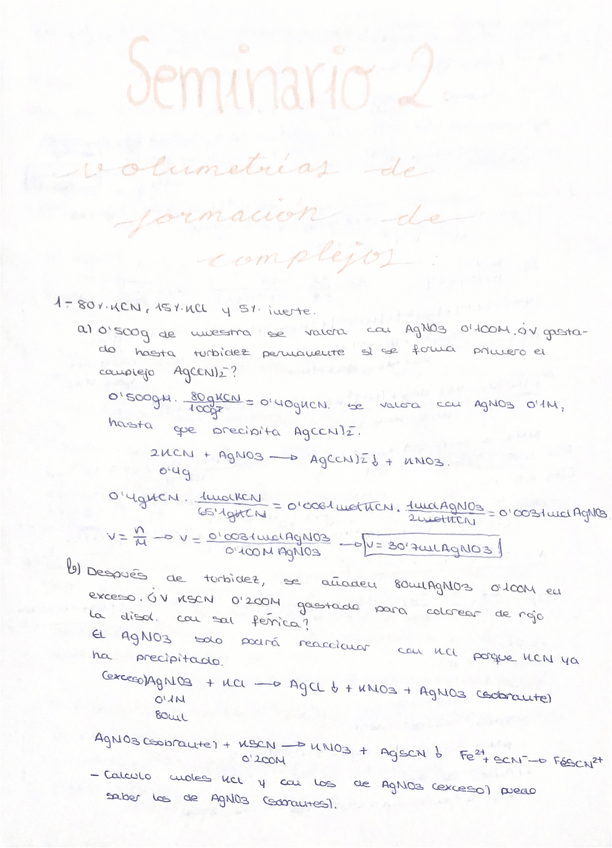 Seminario 2
volumetrías de
formación de
complejos.
1- 80% KCN, 15% KCl y 5% inerte.
a) 0'500g de muestra se valora con AgNO3 0'100M. ¿V gasta-
do hasta turbidez permanente si se forma primero el
complejo Ag(CN)2-?
0'500gM · 80gKCN/100gT = 0'40gKCN. se valora con AgNO3 0'1M,
hasta que precipita Ag(CN)2-.
2KCN + AgNO3 → Ag(CN)2- ↓ + KNO3.
0'4g
0'4gKCN · 1molKCN/65'1gKCN = 0'0061molKCN · 1molAgNO3/2molKCN = 0'0031molAgNO3
V = n/M → V = 0'0031molAgNO3/0'100M AgNO3 → V = 30'7mlAgNO3
b) Después de turbidez, se añaden 80mlAgNO3 0'100M en
exceso. ¿V KSCN 0'200M gastado para colorear de rojo
la disol. con sal férrica?
El AgNO3 solo podrá reaccionar con KCl porque KCN ya
ha precipitado.
(exceso)AgNO3 + KCl → AgCl ↓ + KNO3 + AgNO3 (sobrante)
0'1M
80ml
AgNO3(sobrante) + KSCN → KNO3 + AgSCN ↓ Fe2+ + SCN- → FeSCN2+
0'200M
- Calculo moles KCl y con los de AgNO3 (exceso) puedo
saber los de AgNO3 (sobrantes).